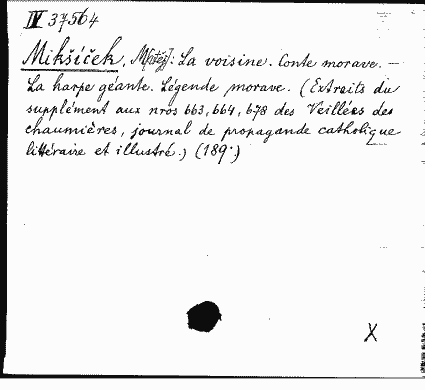 IV 37564
Mikšíček, M[atěj]: La voisine. Conte morave. —
La harpe géante. Légende morave. (Extraits du
supplément aux nros 663, 664, 678 des Veillées des
chaumières, journal de propagande catholique
littéraire et illustré.) (189·)
X